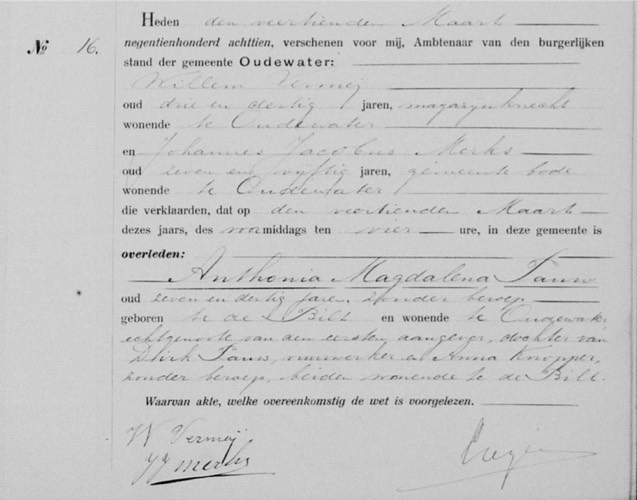 Heden den veertienden Maart
No 16. negentienhonderd achttien, verschenen voor mij, Ambtenaar van den burgerlijken
stand der gemeente Oudewater:
Willem Vermeij
oud drie en dertig jaren, magazijnknecht
wonende te Oudewater
en Johannes Jacobus Merks
oud zeven en vijftig jaren, gemeente bode
wonende te Oudewater
die verklaarden, dat op den veertienden Maart
dezes jaars, des voormiddags ten vier ure, in deze gemeente is
overleden:
Anthonia Magdalena Tauw
oud zeven en dertig jaren, zonder beroep
geboren te de Bilt en wonende te Oudewater
echtgenoote van den eersten aangever, dochter van
Dirk Tauw, vuurwerker en Anna Knopper,
zonder beroep, beiden wonende te de Bilt.
Waarvan akte, welke overeenkomstig de wet is voorgelezen.
W Vermeij
JJ Merks